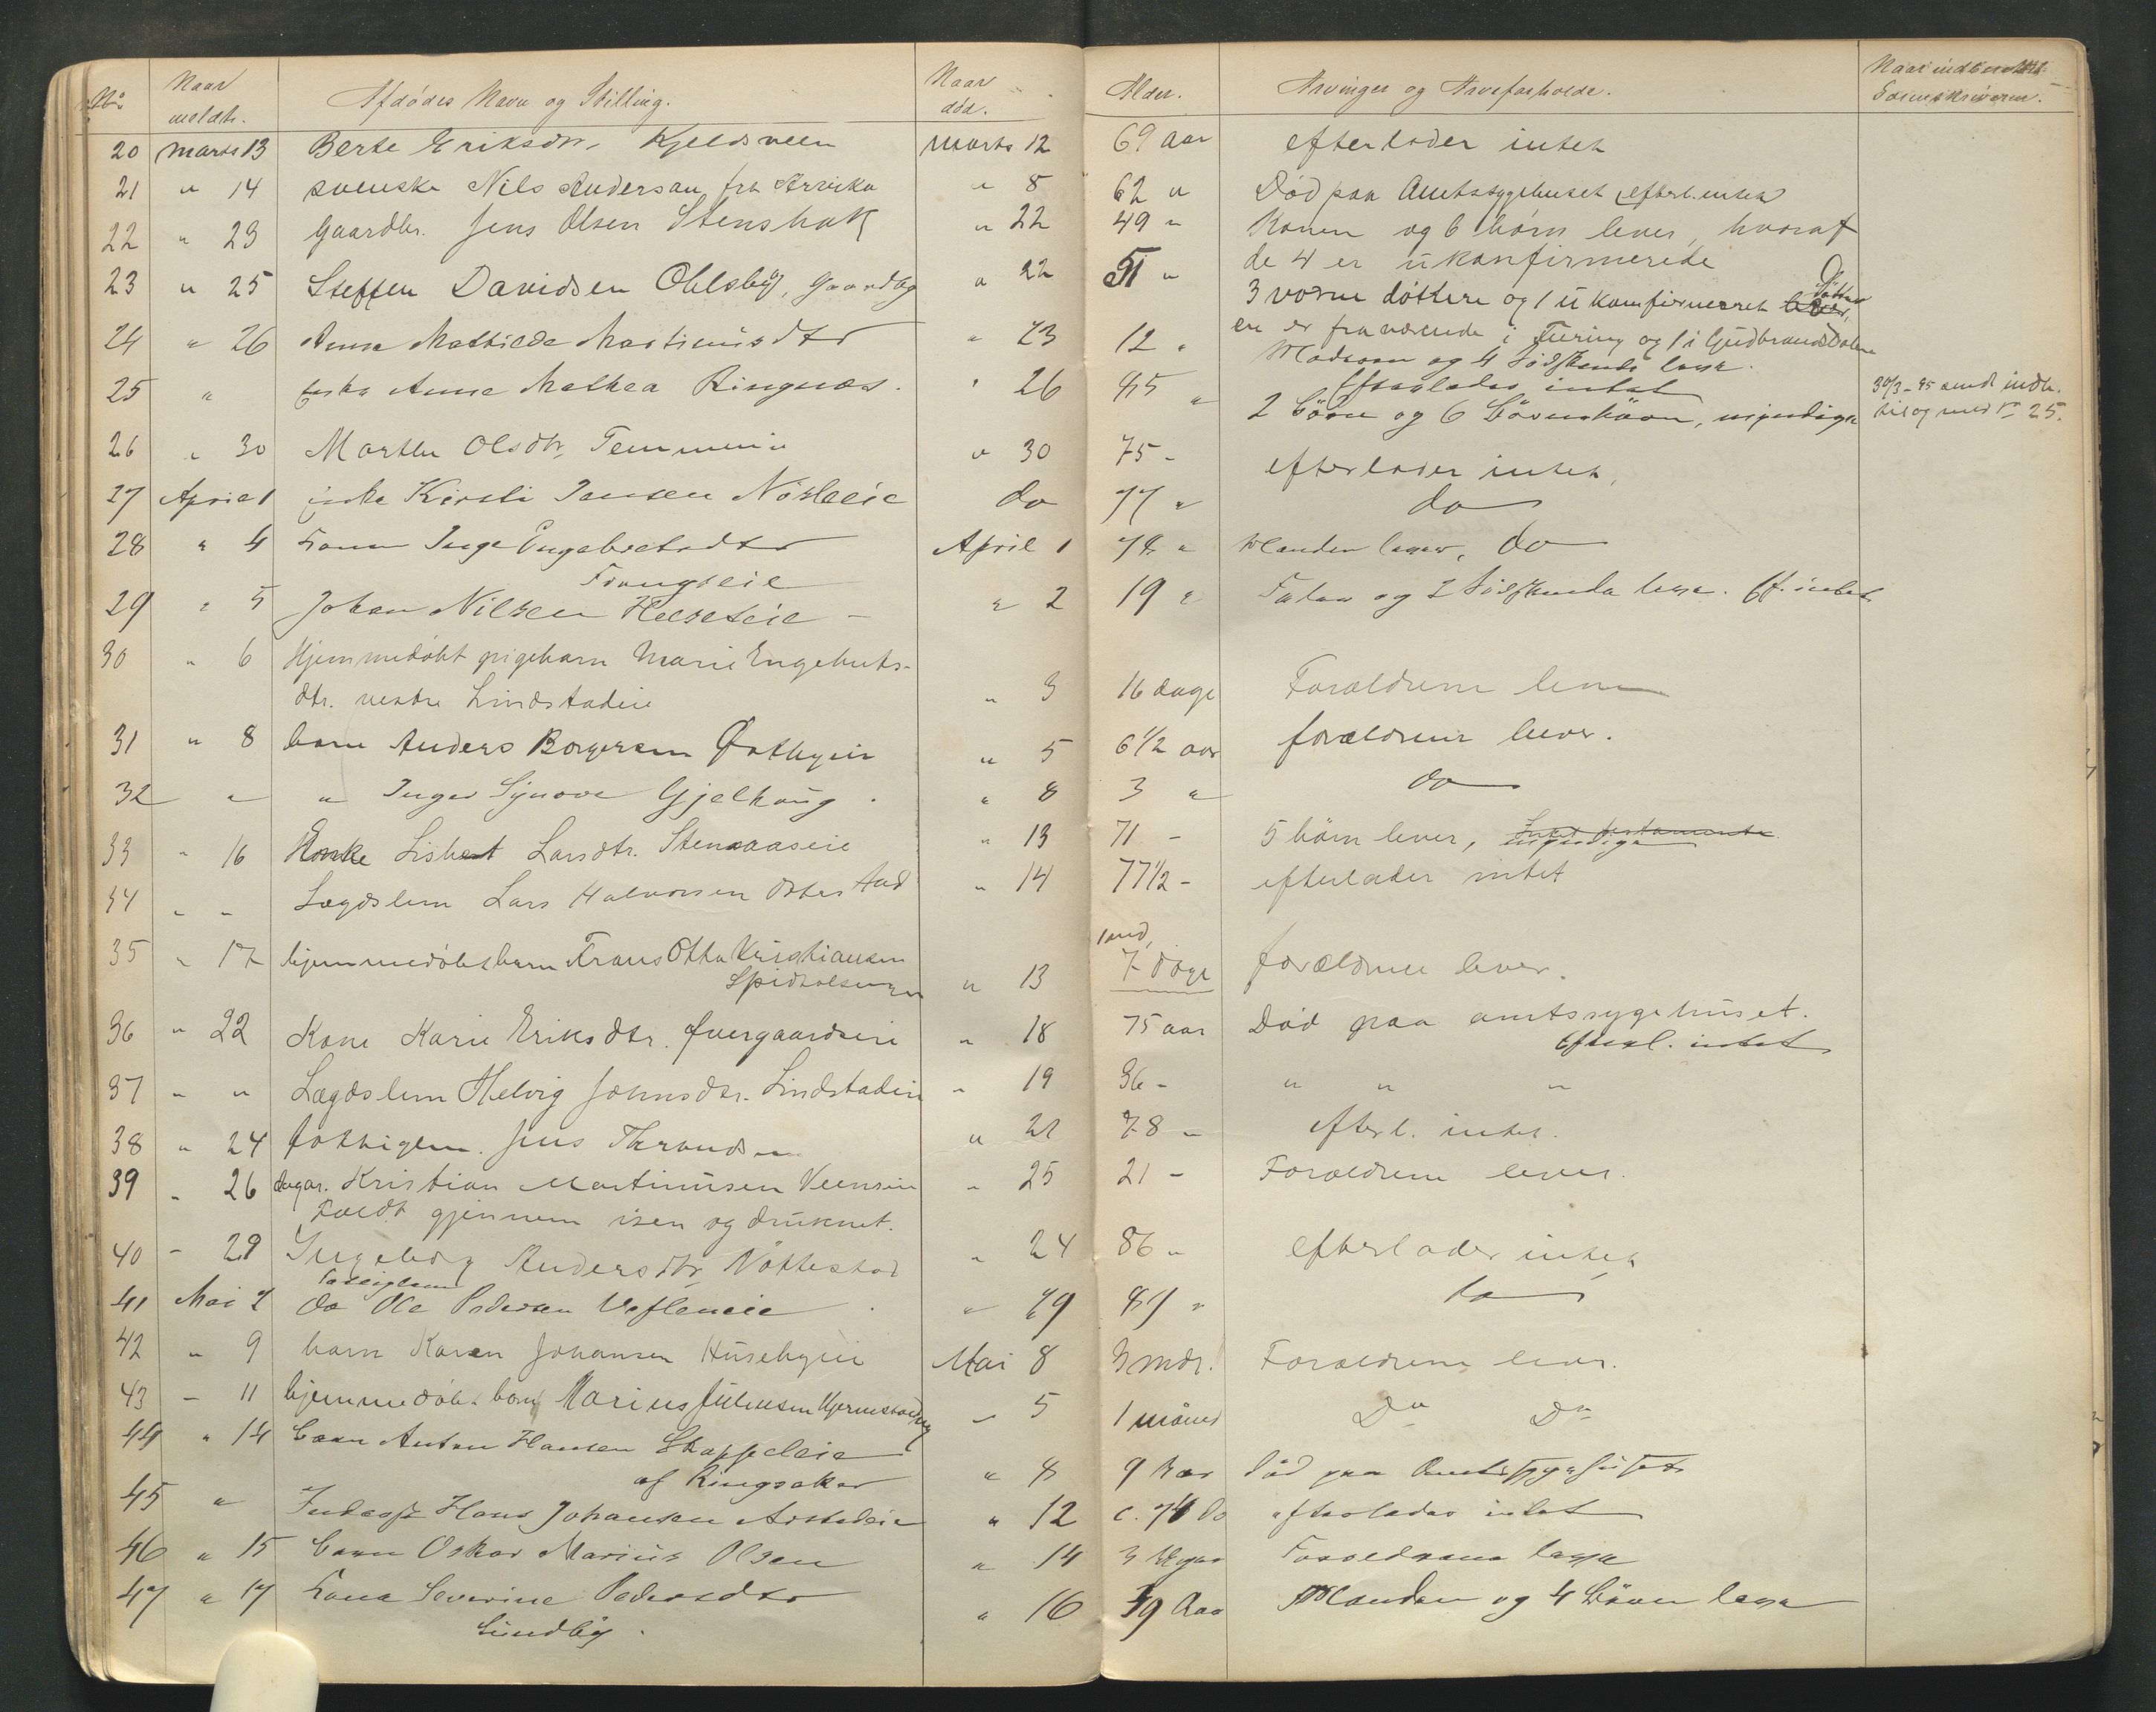 No. Naar meldt. Afdødes Navn og Stilling. Naar død. Alder. Arvinger og Arveforholde. Naar indberettet Sorenskriveren.
20 Marts 13 Berte Eriksdtr. Kjeldsveen Marts 12 69 aar efterlader intet
21 " 14 svenske Nils Anderson fra Arvika " 8 62 " Død paa Amtssygehuset efterl. intet
22 " 23 Gaardbr. Jens Olsen Stenshak " 22 49 " Konen og 6 børn lever, hvoraf
de 4 er ukonfirmerede
23 " 25 Steffen Davidsen Ohlsby, Gaardbg " 22 51 " 3 vorne døttere og 1 ukonfirmerret Datter
en er fraværende i og 1 i Gudbrandsdalen
24 " 26 Anna Mathilde Martinusdtr " 23 12 " Moderen og 4 Södskende leve.
25 " Enke Anne Mathea Ringnæs. " 26 85 " Efterlader intet
2 Börn og 6 Börnebörn, myndige 30/3-95 sendt indb.
til og med No 25.
26 " 30 Marthe Olsdtr. " 30 75 - efterlader intet,
27 April 1 enke Kirsti Jansen do 77 " do
28 " 4 Kone Inge Engebretsdtr April 1 78 " Manden lever, do
29 " 5 Johan Nilsen " 2 19 " Fader og 2 Södskende leve. Ef. intet
30 " 6 Hjemmedøbt pigebarn Marie Engebrets-
dtr. vestre Lindstadeie " 3 16 dage Forældrene leve
31 " 8 barn Anders Borgersen Østbyeie " 5 6 1/2 aar forældrene lever.
32 " " Inger Synøve Gjelhaug. " 8 3 " do
33 " 16 Enke Lisbet Larsdtr. Stenaaseie " 13 71 - 5 børn lever, myndige
34 " " Lægdslem Lars Halvorsen Østestad " 14 77 1/2 - efterlader intet
35 " 17 hjemmedøbt barn Frans Otto Kristiansen
" 13 1 md. 7 dage forældrene lever.
36 " 22 Kone Karie Eriksdtr. Øvergaardseie " 18 75 aar Død paa amtssygehuset.
Efterl. intet
37 " " Lægdslem Helvig Johnsdtr. Lindstadeie " 19 36 - " " "
38 " 24 fattiglem. Jens Throndsen " 21 78 - efterl. intet.
39 " 26 Ungkar. Kristian Martinusen Veenseie " 25 21 - Forældrene lever.
Faldt gjennem isen og druknet.
40 - 29 Ingeborg Andersdtr. Nøttestad " 24 86 " efterlader intet
Fattiglem
41 Mai 2 do Ole Pedersen " 29 87 " do
42 " 9 barn Karen Johansen Husebyeie Mai 8 3 mdr. Forældrene lever.
43 - 11 hjemmedøbt barn Marius Juliussen " 5 1 måned Do Do
44 " 14 Barn Anton Hansen Skappeleie
af Ringsaker " 8 9 Aar Död paa Amtssygehuset
45 " Inderst Hans Johansen " 12 c. 74 Do efterlader intet
46 " 15 Barn Oskar Marius Olsen " 14 3 Uger Forældrene leve
47 " 17 Kone Severine Pedersdtr
Sundby. " 16 39 Aar Manden og 4 Börn leve